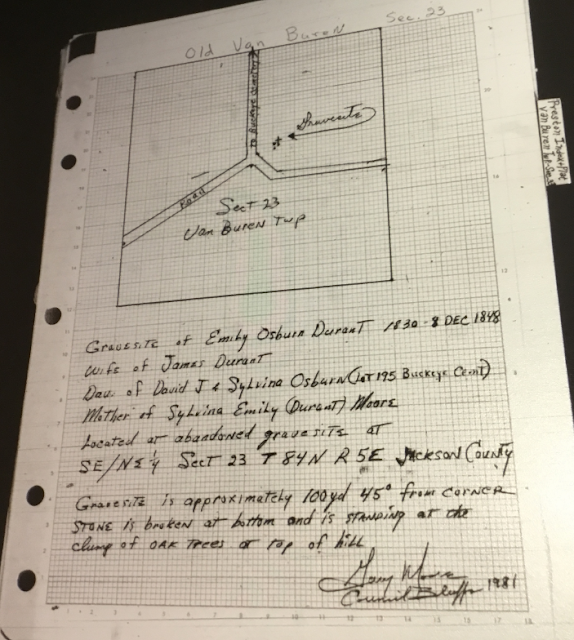 Old Van Buren Sec. 23
To Buckeye Cemetery
Gravesite
Road
Sect 23
Van Buren Twp
Gravesite of Emily Osburn Durant 1830 - 8 DEC 1848
Wife of James Durant
Dau. of David J & Sylvina Osburn (Lot 195 Buckeye Cemt)
Mother of Sylvina Emily (Durant) Moore
Located at abandoned gravesite at
SE/NE 1/4 Sect 23 T 84N R 5E Jackson County
Gravesite is approximately 100yd 45° from CORNER
STONE is broken at bottom and is STANDING at the
clump of OAK Trees at top of hill
Gary Moore
Council Bluffs 1981
Preston
Van Buren Twp